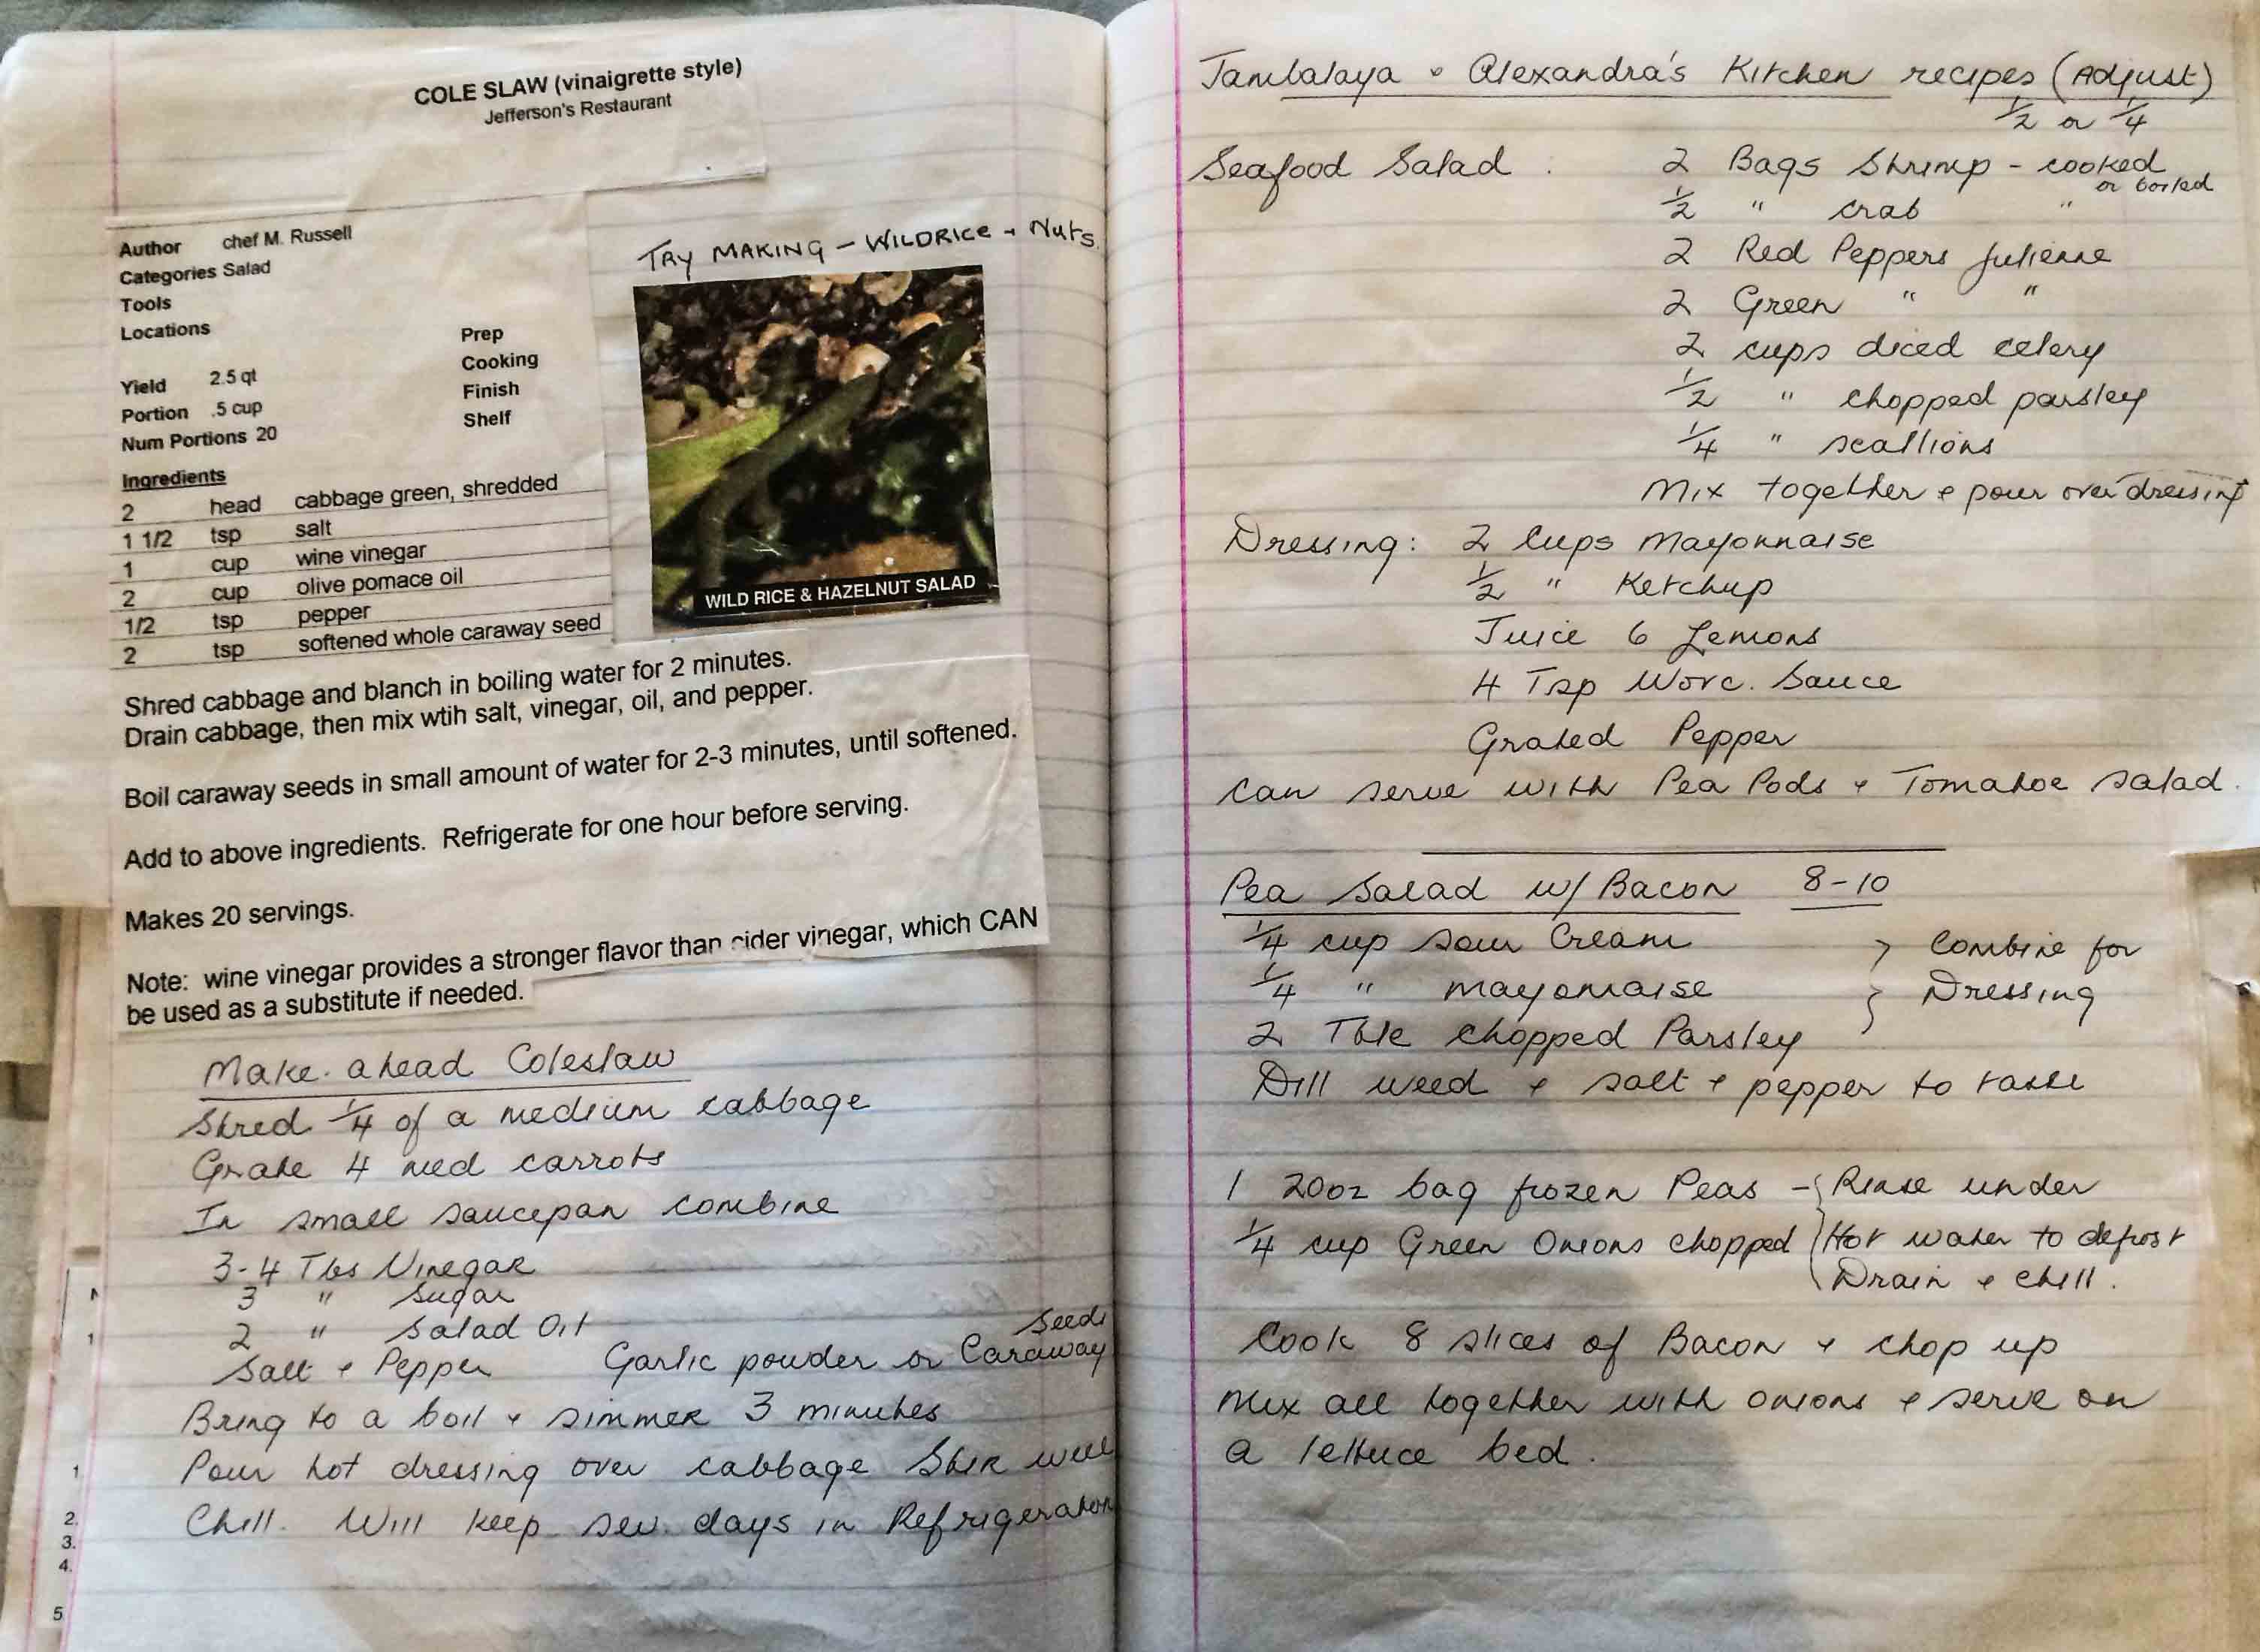 COLE SLAW (vinaigrette style)
Jefferson's Restaurant
Author chef M. Russell
Categories Salad
Tools
Locations
Prep
Cooking
Yield 2.5 qt
Finish
Portion .5 cup
Shelf
Num Portions 20
Ingredients
2 head cabbage green, shredded
1 1/2 tsp salt
1 cup wine vinegar
2 cup olive pomace oil
1/2 tsp pepper
2 tsp softened whole caraway seed
TRY MAKING - WILDRICE + Nuts.
WILD RICE & HAZELNUT SALAD
Shred cabbage and blanch in boiling water for 2 minutes.
Drain cabbage, then mix wtih salt, vinegar, oil, and pepper.
Boil caraway seeds in small amount of water for 2-3 minutes, until softened.
Add to above ingredients. Refrigerate for one hour before serving.
Makes 20 servings.
Note: wine vinegar provides a stronger flavor than cider vinegar, which CAN
be used as a substitute if needed.
Make-ahead Coleslaw
Shred 1/4 of a medium cabbage
Grate 4 med carrots
In small saucepan combine
3-4 Tbs Vinegar
3 " Sugar
2 " Salad Oil
Salt + Pepper Garlic powder or Caraway Seeds
Bring to a boil + simmer 3 minutes
Pour hot dressing over cabbage Stir well
Chill. Will keep sev. days in Refrigerator
1
1
2.
3.
4.
5
Jambalaya • Alexandra's Kitchen recipes (Adjust)
1/2 or 1/4
Seafood Salad : 2 Bags Shrimp - cooked
or boiled
1/2 " crab "
2 Red Peppers Julienne
2 Green " "
2 cups diced celery
1/2 " chopped parsley
1/4 " scallions
Mix together + pour over dressing
Dressing: 2 Cups Mayonnaise
1/2 " Ketchup
Juice 6 Lemons
4 Tsp Worc. Sauce
Grated Pepper
Can serve with Pea Pods + Tomatoe salad.
Pea Salad w/ Bacon 8-10
1/4 cup sour Cream } Combine for
1/4 " mayonnaise } Dressing
2 Tble chopped Parsley
Dill weed + salt + pepper to taste
1 20oz bag frozen Peas - { Rinse under
1/4 cup Green Onions chopped { Hot water to defrost
Drain + chill.
Cook 8 slices of Bacon + chop up
Mix all together with onions + serve on
a lettuce bed.